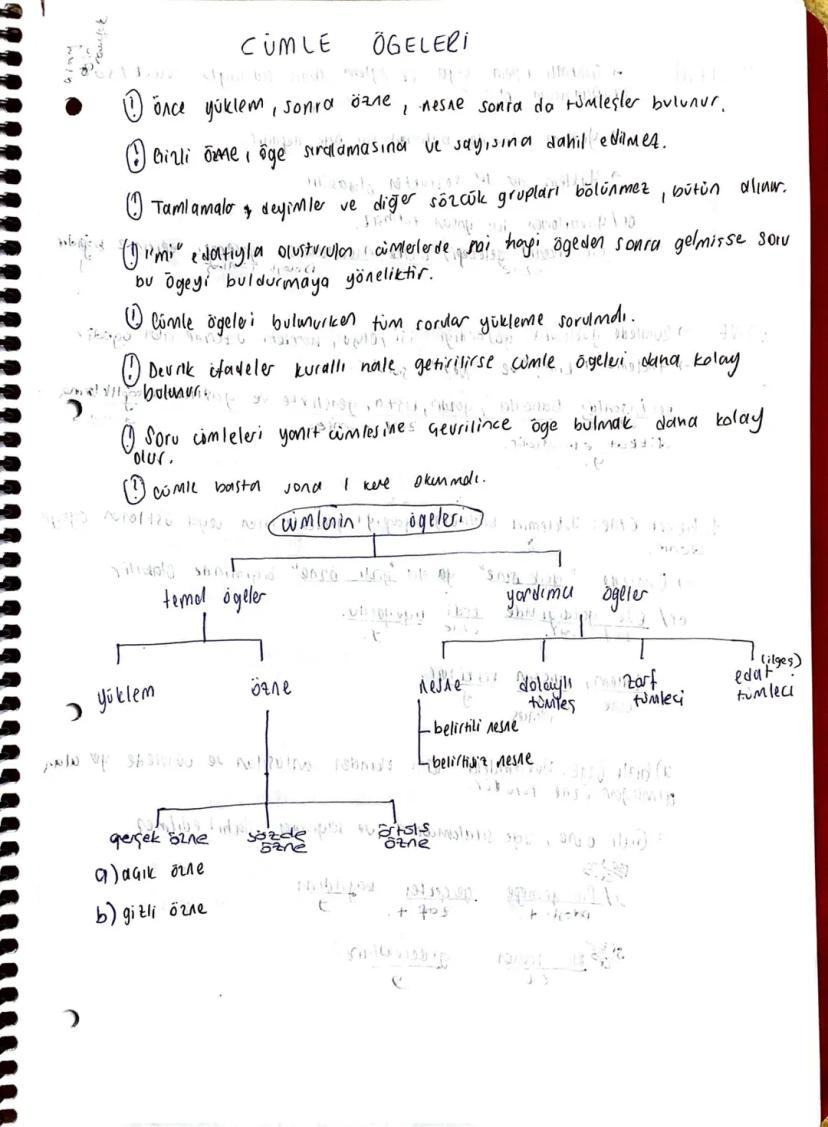 CÜMLE ÖGELERİ
(!) önce yüklem, sonra özne, nesne sonra da tümleçler bulunur.
(!) Gizli özne, öge sıralamasına ve sayısına dahil edilmez.
(!) Tamlamalar, deyimler ve diğer sözcük grupları bölünmez, bütün alınır.
(!) "mi" edatıyla oluşturulan cümlelerde mi hangi ögeden sonra gelmişse soru
bu ögeyi buldurmaya yöneliktir.
(!) Cümle ögeleri bulunurken tüm sorular yükleme sorulmalı.
(!) Devrik ifadeler kurallı hale getirilirse cümle ögeleri daha kolay
bulunur.
(!) Soru cümleleri yanıt cümlesine çevrilince öge bulmak daha kolay
olur.
(!) cümle baştan sona 1 kere okunmalı.
cümlenin ögeleri
temel ögeler yardımcı ögeler
yüklem özne nesne dolaylı tümleç zarf tümleci edat (ilgeç) tümleci
belirtili nesne
belirtisiz nesne
gerçek özne sözde özne örtülü özne
a) açık özne
b) gizli özne